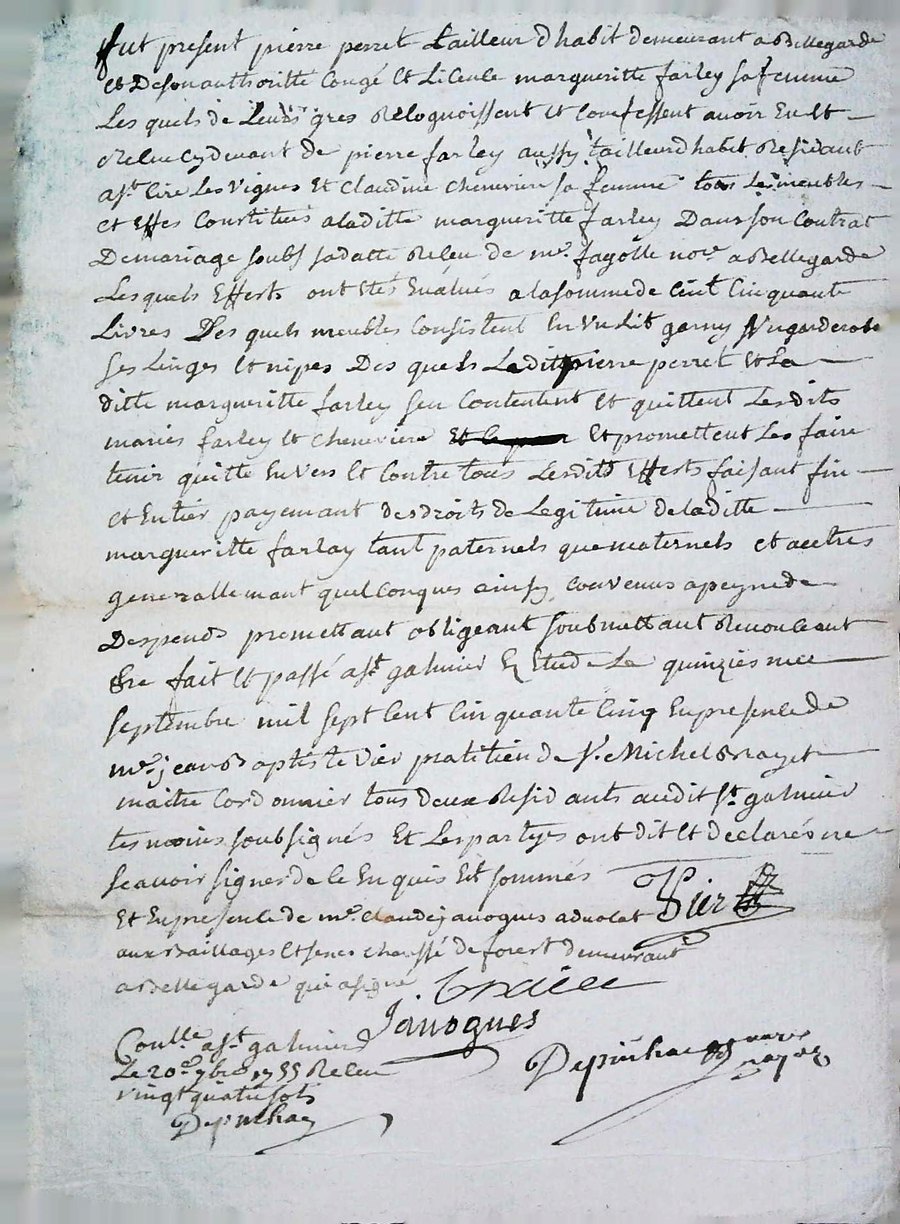 fut present pierre perret tailleur d habit demeurant a Bellegarde
et De son authoritté Congé et Licence margueritte farley sa femme
Les quels de Leurs gres Recognoissent et Confessent avoir Eu et
Receu cy devant de pierre farley aussy tailleur d habit Residant
a st Cire Les vignes Et Claudine chenevier sa femme tous Les meubles
et Effes Constitues a laditte margueritte farley Dans son Contrat
De mariage soubs sa datte Receu de me. fayolle nore a Bellegarde
Lesquels Efferts ont Etés Evalués a la somme de Cent Cinquante
Livres Des quels meubles Consistent En un Lit garny garderobe
ses Linges Et nipes Des quels Ledit pierre perret Et La
ditte margueritte farley sen Contentent Et quittent Lesdits
mariés farley Et cheneviere Et promettent Les faire
tenir quitte Envers Et Contre tous Lesdits Efferts faisant fin
et Entier payemant des droits de Legitime de laditte
margueritte farlay tant paternels que maternels et autres
generallemant quelconques ainsy convenus a peyne de
Despends promettant obligeant soubmettant Renonceant
fait Et passé a st galmier Etude Le quinziesme
septembre mil sept Cent Cinquante Cinq En presence de
me. jean Baptiste Vier pratitien de sr. Michel
maitre Cordonnier tous deux Residants audit st. galmier
tesmoins soubsignés Et Les partyes ont dit et declarés ne
scavoir signer de ce Enquis Et sommés
Vier
Et En presence de me. claude javogues advocat
aux Baillages Et senechaussé de forest demeurant
a Bellegarde qui a signé
Javogues
Conlle a st galmier
Le 20e. 7bre 1755 Receu
vingt quatre sols
Depuihac
Depuihac